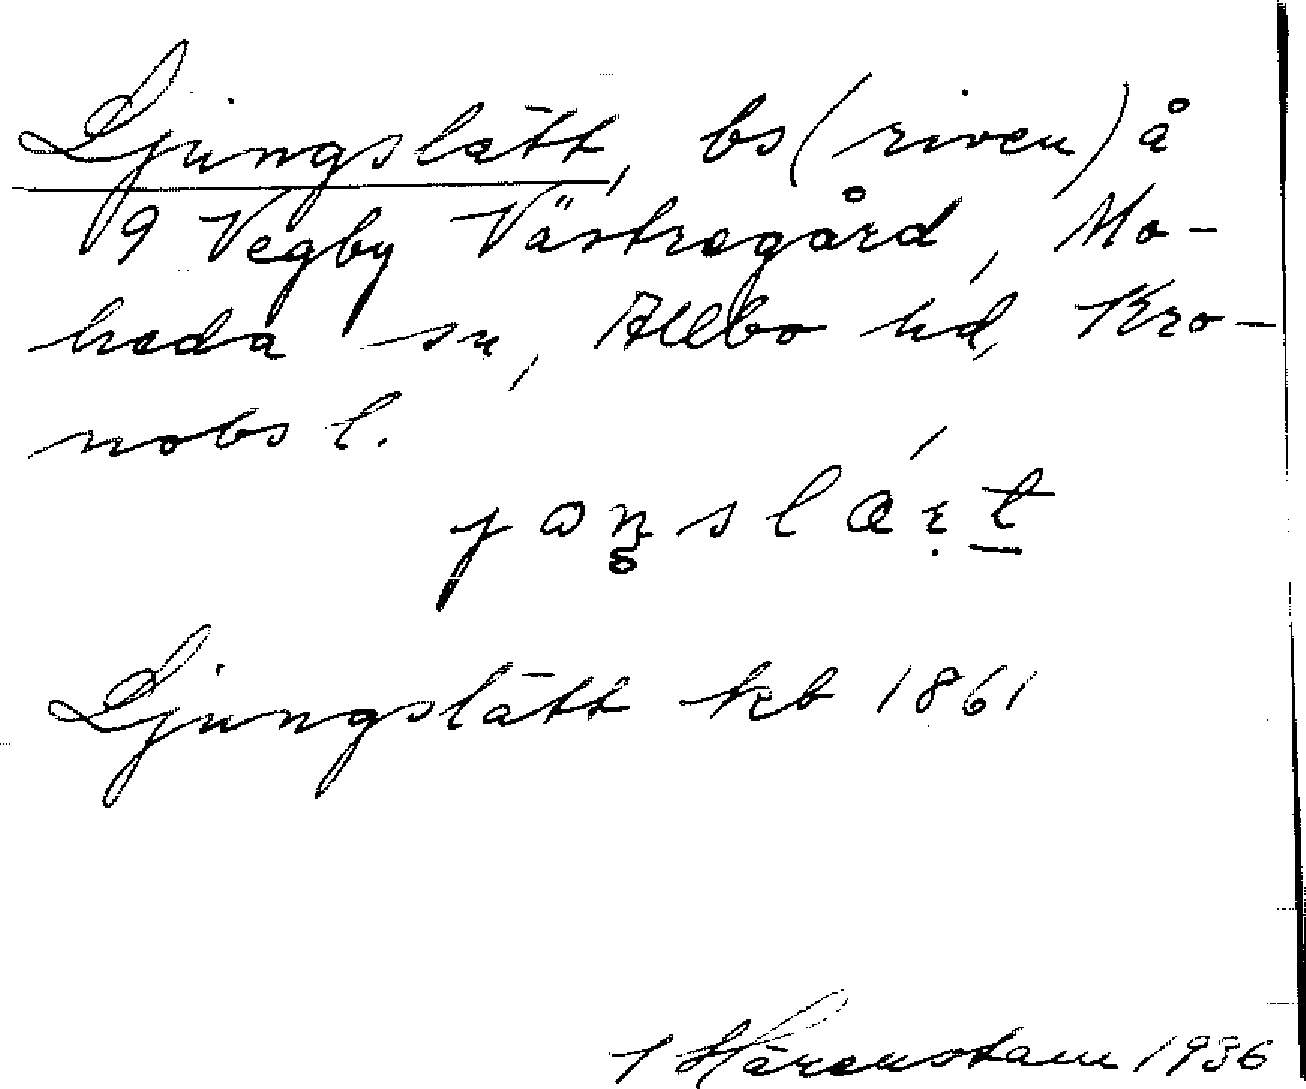 Ljungslätt, bs (riven) å
19 Vegby Västregård, Mo-
heda sn, Allbo hd, Kro-
nobs l.
Ljungslätt kb 1861
J Härenstam 1936